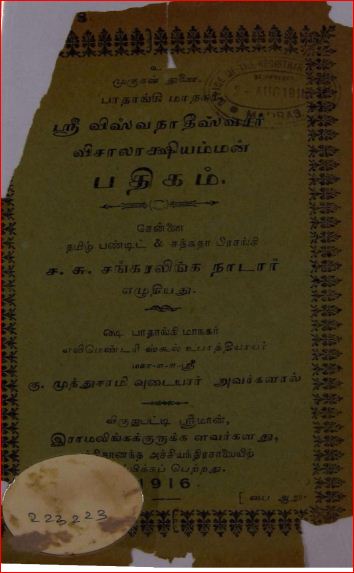 உ
முருகன் துணை.
பாதாங்கி மாநகர்
ஸ்ரீ விஸ்வநாதீஸ்வரர்
விசாலாக்ஷியம்மன்
பதிகம்.
சென்னை
தமிழ் பண்டிட் & சத்கதா பிரசங்கி
ச. சு. சங்கரலிங்க நாடார்
எழுதியது.
ஷெ பாதாங்கி மாநகர்
எலிமெண்டரி ஸ்கூல் உபாத்தியாயர்
மகா-௱-௱-ஸ்ரீ
கு. முத்துசாமி வுடையார் அவர்களால்
விருதுபட்டி ஸ்ரீமான்,
இராமலிங்கக்குருக்க ளவர்களது,
அச்சியந்திரசாலையிற்
பெற்றது.
1916
[ பை ஆறு
MADRAS
223223